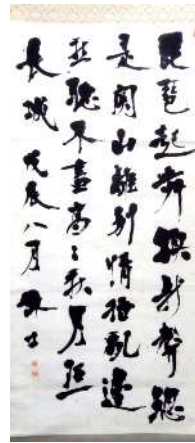 琵琶起舞換新聲總
是關山離別情撩亂邊
愁聽不盡高々秋月照
長城 戊辰八月